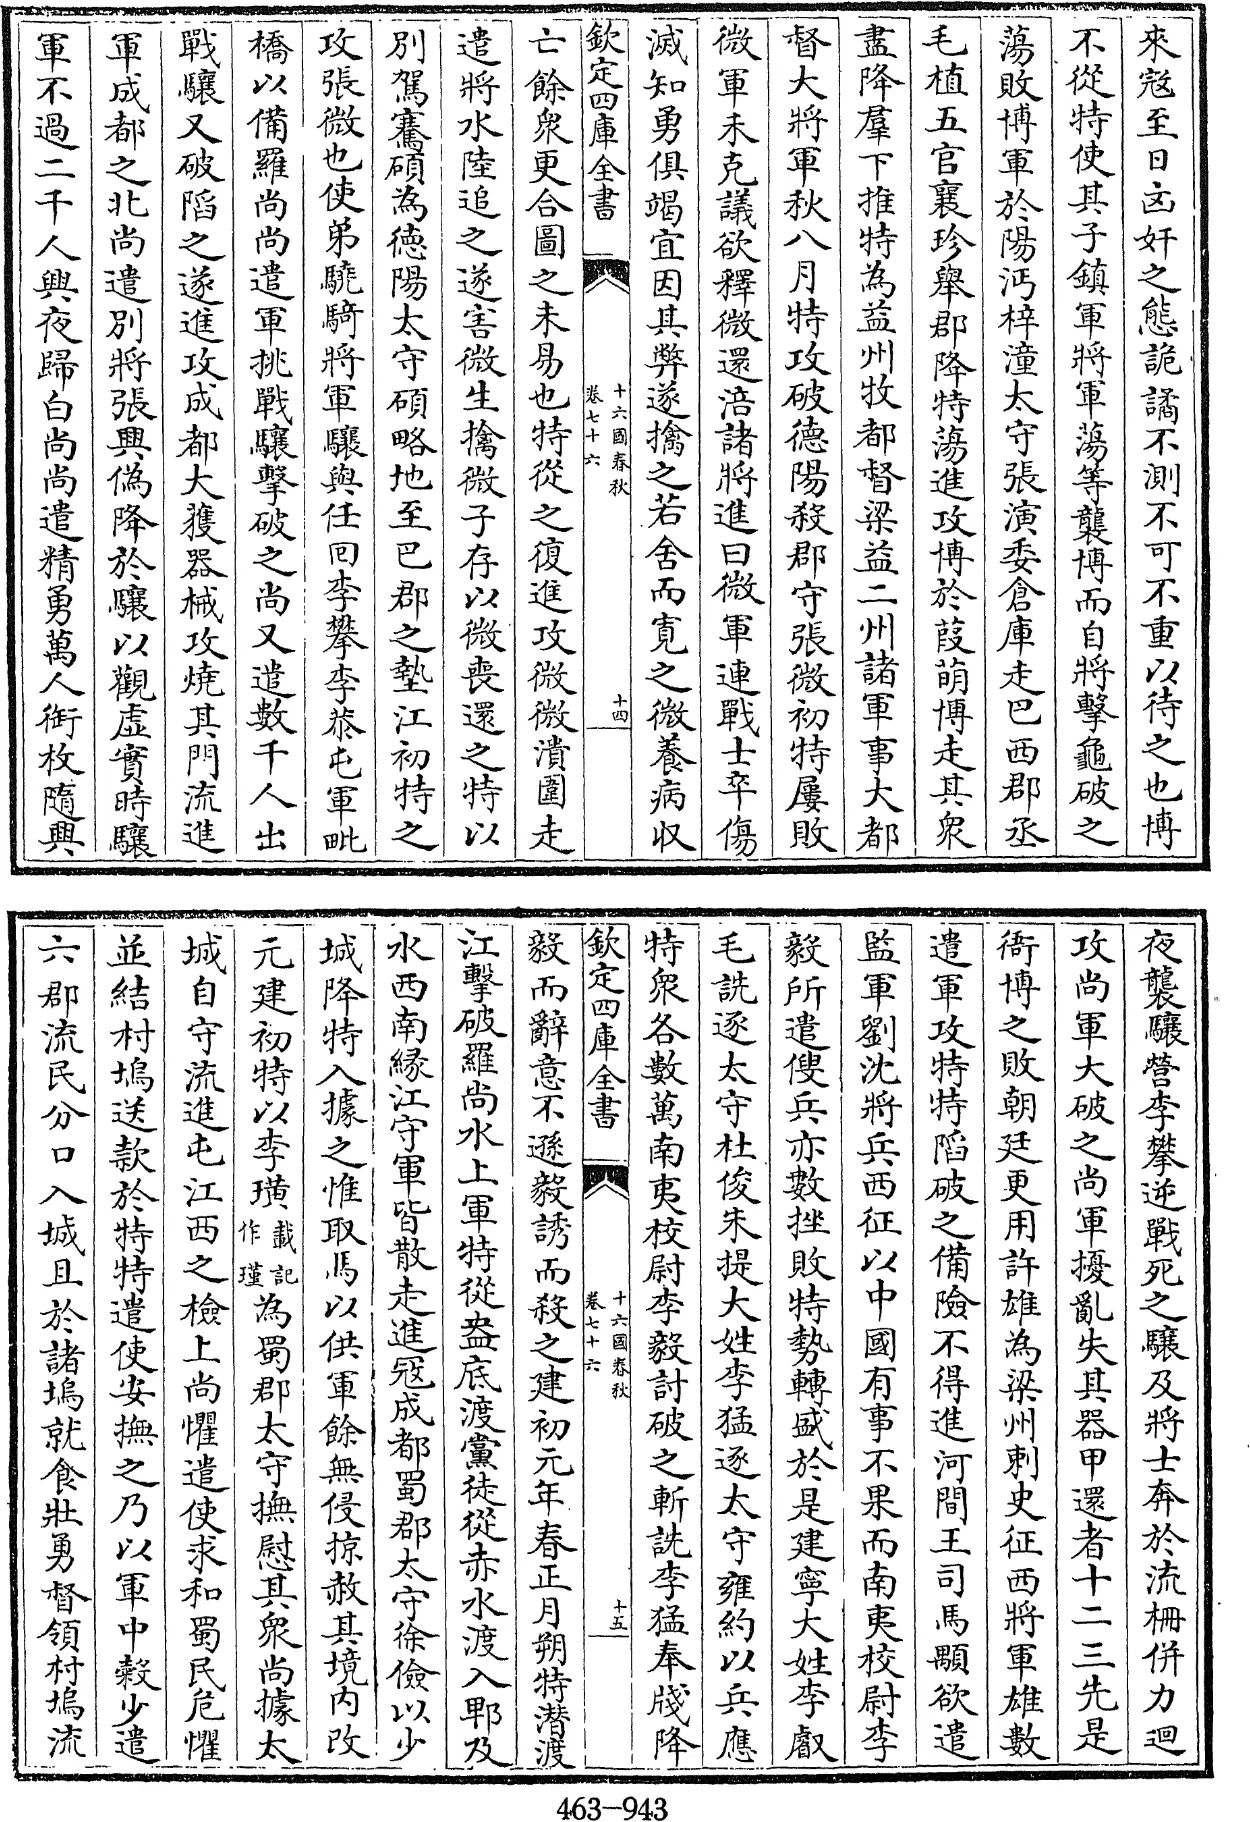 來冦至日㐫奸之態詭譎不測不可不重以待之也博
不從特使其子鎮軍將軍蕩等襲博而自將擊龜破之
蕩敗博軍於陽沔梓潼太守張演委倉庫走巴西郡丞
毛植五官襄珍舉郡降特蕩進攻博於葭萌博走其衆
盡降羣下推特為益州牧都督梁益二州諸軍事大都
督大將軍秋八月特攻破德陽殺郡守張微初特屢敗
微軍未克議欲釋微還涪諸將進曰微軍連戰士卒傷
滅知勇俱竭宜因其弊遂擒之若舍而寛之微養病収
欽定四庫全書
十六國春秋
卷七十六
十四
亡餘衆更合圖之未易也特從之復進攻微微潰圍走
遣將水陸追之遂害微生擒微子存以微喪還之特以
別駕騫碩為德陽太守碩略地至巴郡之墊江初特之
攻張微也使弟驍騎將軍驤與任囘李攀李恭屯軍毗
橋以備羅尚尚遣軍挑戰驤擊破之尚又遣數千人出
戰驤又破䧟之遂進攻成都大獲器械攻燒其門流進
軍成都之北尚遣別將張興偽降於驤以觀虛實時驤
軍不過二千人興夜歸白尚尚遣精勇萬人銜枚隨興
夜襲驤營李攀逆戰死之驤及將士奔於流柵併力迴
攻尚軍大破之尚軍擾亂失其器甲還者十二三先是
衙博之敗朝廷更用許雄為梁州刺史征西將軍雄數
遣軍攻特特䧟破之備險不得進河間王司馬顒欲遣
監軍劉沈將兵西征以中國有事不果而南夷校尉李
毅所遣傁兵亦數挫敗特勢轉盛於是建寧大姓李叡
毛詵逐太守杜俊朱提大姓李猛逐太守雍約以兵應
特衆各數萬南夷校尉李毅討破之斬詵李猛奉牋降
欽定四庫全書
十六國春秋
卷七十六
十五
毅而辭意不遜毅誘而殺之建初元年春正月朔特潛渡
江擊破羅尚水上軍特從盎底渡黨徒從赤水渡入郫及
水西南縁江守軍皆散走進冦成都蜀郡太守徐儉以少
城降特入據之惟取馬以供軍餘無侵掠赦其境内改
元建初特以李璜載記作瑾為蜀郡太守撫慰其衆尚據太
城自守流進屯江西之檢上尚懼遣使求和蜀民危懼
並結村塢送款於特特遣使安撫之乃以軍中穀少遣
六郡流民分口入城且於諸塢就食壯勇督領村塢流
463-943